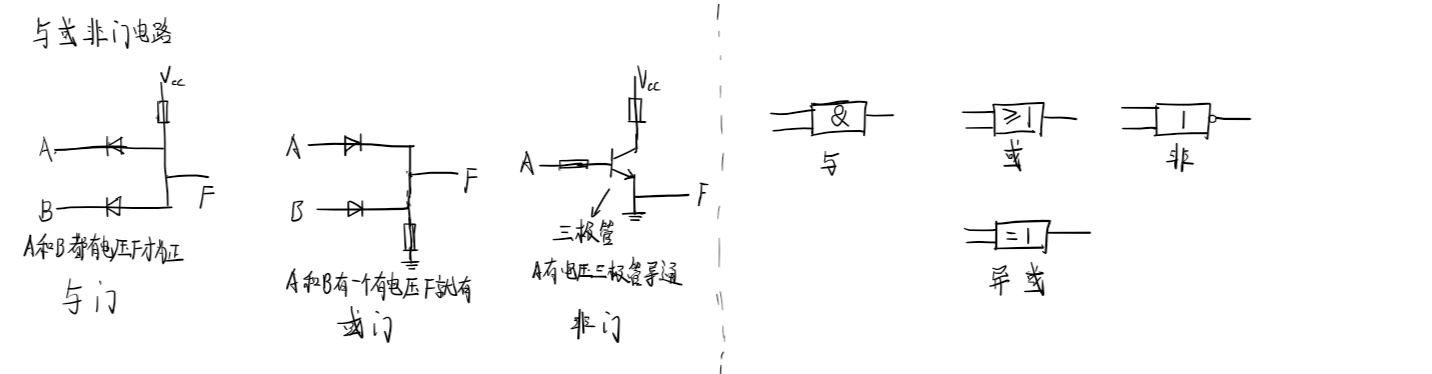 与或非门电路
Vcc
A
B
F
A和B都有电压F才正
与门
A
B
F
A和B有一个有电压F就有
或门
Vcc
A
F
三极管
A有电压三极管导通
非门
&
与
≥1
或
1
非
=1
异或